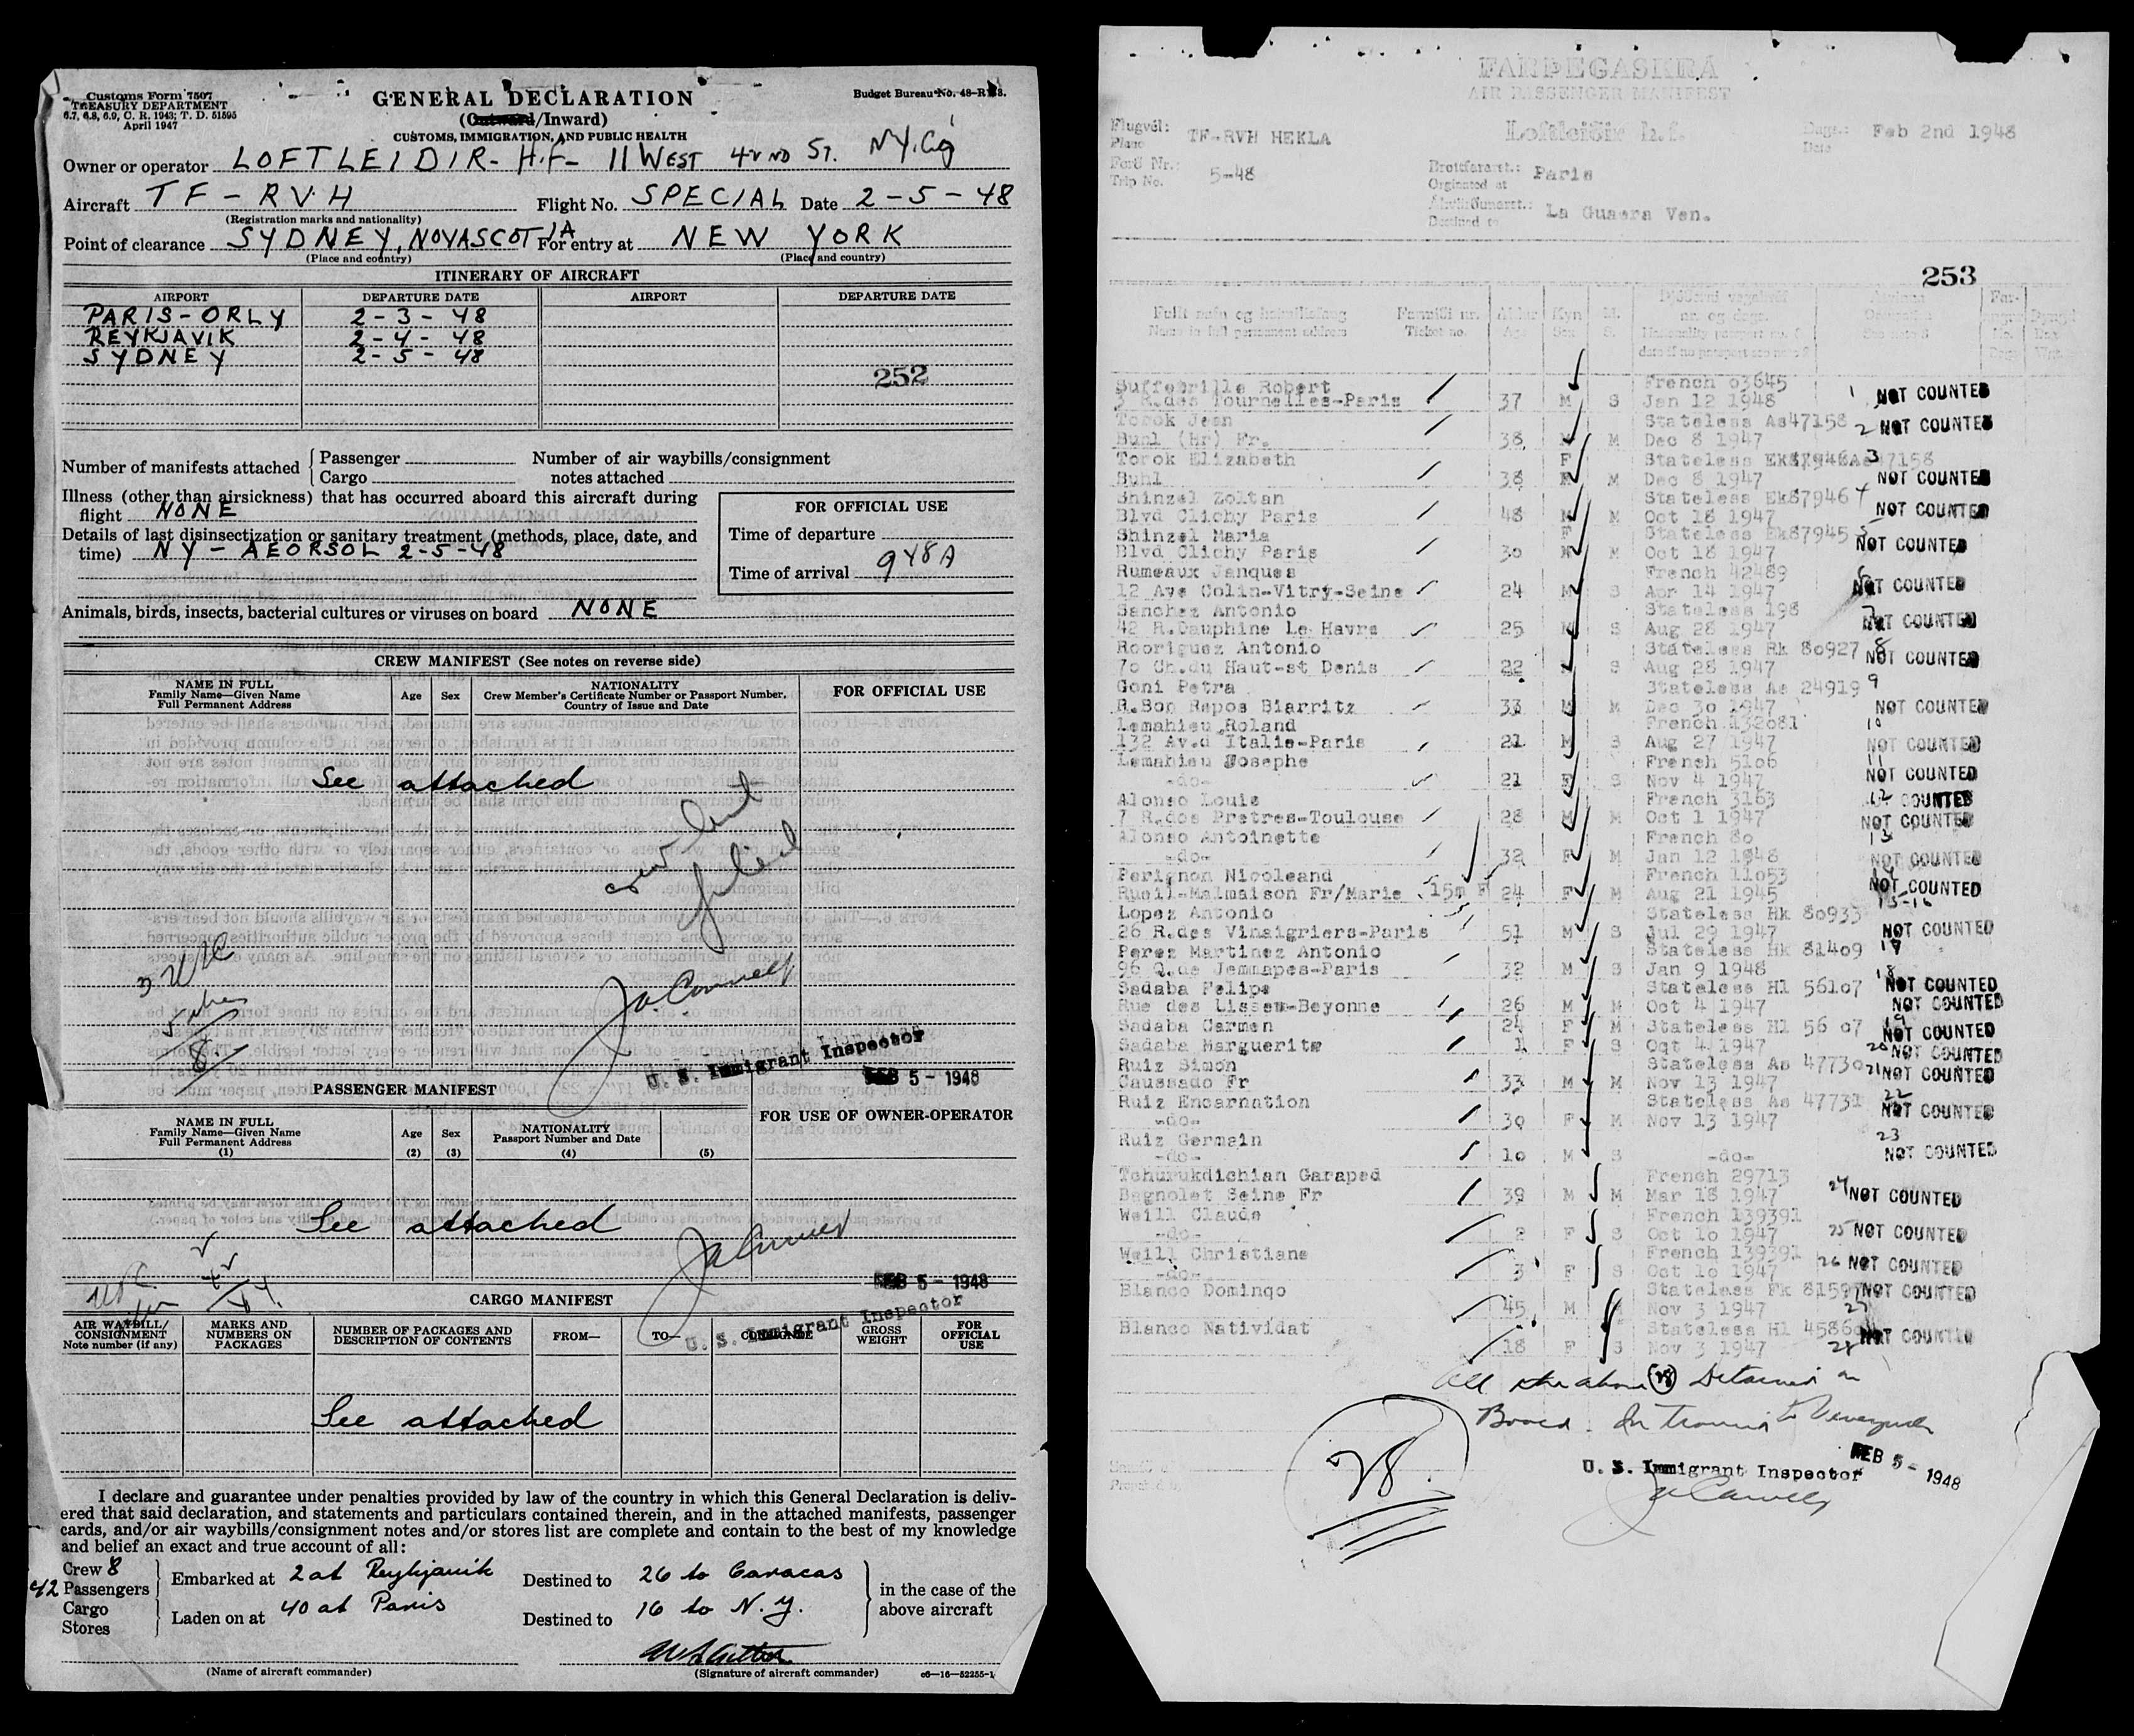 Customs Form 7507
TREASURY DEPARTMENT
6.7, 6.8, 6.9, C. R. 1943; T. D. 51595
April 1947
GENERAL DECLARATION
(Outward/Inward)
CUSTOMS, IMMIGRATION, AND PUBLIC HEALTH
Budget Bureau No. 48-R
Owner or operator LOFTLEIDIR- H.f- 11 WEST 42ND ST. NY. City
Aircraft TF-RVH Flight No. SPECIAL Date 2-5-48
(Registration marks and nationality)
Point of clearance SYDNEY, NOVASCOTIA For entry at NEW YORK
(Place and country) (Place and country)
ITINERARY OF AIRCRAFT
AIRPORT DEPARTURE DATE AIRPORT DEPARTURE DATE
PARIS-ORLY 2-3-48
REYKJAVIK 2-4-48
SYDNEY 2-5-48
252
Number of manifests attached { Passenger Number of air waybills/consignment
Cargo notes attached
Illness (other than airsickness) that has occurred aboard this aircraft during
flight NONE
Details of last disinsectization or sanitary treatment (methods, place, date, and
time) NY - AEORSOL 2-5-48
FOR OFFICIAL USE
Time of departure
Time of arrival 948A
Animals, birds, insects, bacterial cultures or viruses on board NONE
CREW MANIFEST (See notes on reverse side)
NAME IN FULL
Family Name—Given Name
Full Permanent Address
Age
Sex
NATIONALITY
Crew Member's Certificate Number or Passport Number,
Country of Issue and Date
FOR OFFICIAL USE
See attached
crew list
filed
3
8
U. S. Immigrant Inspector
FEB 5 - 1948
PASSENGER MANIFEST
FOR USE OF OWNER-OPERATOR
NAME IN FULL
Family Name—Given Name
Full Permanent Address
(1)
Age
(2)
Sex
(3)
NATIONALITY
Passport Number and Date
(4)
(5)
See attached
FEB 5 - 1948
U. S. Immigrant Inspector
CARGO MANIFEST
AIR WAYBILL/
CONSIGNMENT
Note number (if any)
MARKS AND
NUMBERS ON
PACKAGES
NUMBER OF PACKAGES AND
DESCRIPTION OF CONTENTS
FROM—
TO—
CONSIGNEE
GROSS
WEIGHT
FOR
OFFICIAL
USE
See attached
I declare and guarantee under penalties provided by law of the country in which this General Declaration is deliv-
ered that said declaration, and statements and particulars contained therein, and in the attached manifests, passenger
cards, and/or air waybills/consignment notes and/or stores list are complete and contain to the best of my knowledge
and belief an exact and true account of all:
Crew 8
42 Passengers
Cargo
Stores
Embarked at 2 at Reykjavik Destined to 26 to Caracas
Laden on at 40 at Paris Destined to 16 to N.Y.
in the case of the
above aircraft
(Name of aircraft commander) (Signature of aircraft commander) c6—16—52255-1
FARÞEGASKRÁ
AIR PASSENGER MANIFEST
Flugvél:
Plane TF-RVH HEKLA
Loftleiðir h.f.
Dags.:
Date Feb 2nd 1948
Ferð Nr.:
Trip No. 5-48
Brottfararst.:
Orginated at Paris
Ákvörðunarst.:
Destined to La Guaera Ven.
253
Fullt nafn og heimilisfang
Name in full permanent address
Farmiði nr.
Ticket no.
Aldur
Age
Kyn
Sex
M.
S.
Suffebrille Robert French 03645
3 R.des Tournelles-Paris 37 M S Jan 12 1948 1 NOT COUNTED
Torok Jean Stateless As47158
Buhl (Hr) Fr. 38 M M Dec 8 1947 2 NOT COUNTED
Torok Elizabeth F Stateless 47158 3
Buhl 38 M Dec 8 1947 NOT COUNTED
Shinzel Zoltan Stateless Ek87946 4
Blvd Clichy Paris 48 M M Oct 18 1947 NOT COUNTED
Shinzel Maria F Stateless Ek87945 5
Blvd Clichy Paris 30 M Oct 18 1947 NOT COUNTED
Rumeaux Janques French 42489 6
12 Ave Colin-Vitry-Seine 24 M S Apr 14 1947 NOT COUNTED
Sanchez Antonio Stateless 198 7
42 R.Dauphine Le Havre 25 M S Aug 28 1947 NOT COUNTED
Rodriguez Antonio Stateless Rk 80927 8
70 Ch.du Haut-st Denis 22 S Aug 28 1947 NOT COUNTED
Goni Petra Stateless As 24919 9
R.Bon Repos Biarritz 33 M Dec 30 1947 NOT COUNTED
Lemahieu Roland French 132081 10
132 Av.d Italie-Paris 21 M S Aug 27 1947 NOT COUNTED
Lemahieu Josephe French 5106 11
-do- 21 F S Nov 4 1947 NOT COUNTED
Alonso Louis French 3163 12 NOT COUNTED
7 R.dos Pretres-Toulouse 28 M M Oct 1 1947 NOT COUNTED
Alonso Antoinette French 80 13
-do- 32 F M Jan 12 1948 NOT COUNTED
Perignon Nicoleand French 11053
Rueil-Malmaison Fr/Marie 15m F 24 F M Aug 21 1945 NOT COUNTED
Lopez Antonio Stateless Hk 80933 15-16
26 R.des Vinaigriers-Paris 51 M S Jul 29 1947 NOT COUNTED
Perez Martinez Antonio Stateless Hk 81409 17
96 Q.de Jemmapes-Paris 32 M S Jan 9 1948
Sadaba Felipe Stateless Hl 56107 18 NOT COUNTED
Rue des Lissew-Beyonne 26 M M Oct 4 1947 NOT COUNTED
Sadaba Carmen 24 F M Stateless Hl 56 07 19 NOT COUNTED
Sadaba Marguerite 1 F S Oqt 4 1947 20 NOT COUNTED
Ruiz Simon Stateless As 47730
Caussado Fr 33 M M Nov 13 1947 21 NOT COUNTED
Ruiz Encarnation Stateless As 47731 22
-do- 30 F M Nov 13 1947 NOT COUNTED
Ruiz Germain 23
-do- 10 M S -do- NOT COUNTED
Tchurukdichian Garaped French 29713
Bagnolet Seine Fr 39 M M Mar 18 1947 24 NOT COUNTED
Weill Claude French 139391
-do- 2 F S Oct 10 1947 25 NOT COUNTED
Weill Christiane French 139391
-do- 3 F S Oct 10 1947 26 NOT COUNTED
Blanco Domingo Stateless Fk 8159 NOT COUNTED
45 M Nov 3 1947 27
Blanco Natividat Stateless Hl 4586 NOT COUNTED
18 F S Nov 3 1947 28
All the above (28) Detained on
Board. In Transit to Venezuela
28
FEB 5 - 1948
U. S. Immigrant Inspector